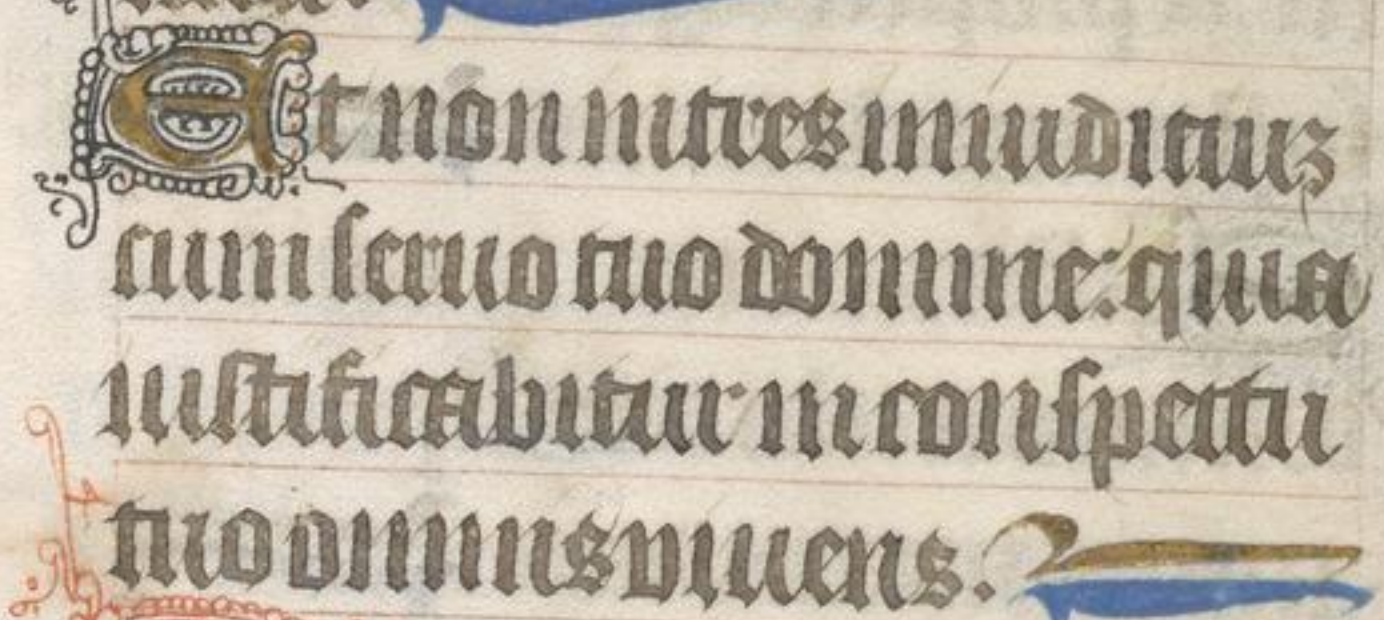 Et non intres in iudiciuz
cum seruo tuo domine: quia
iustificabitur in conspectu
tuo omnis viuens.